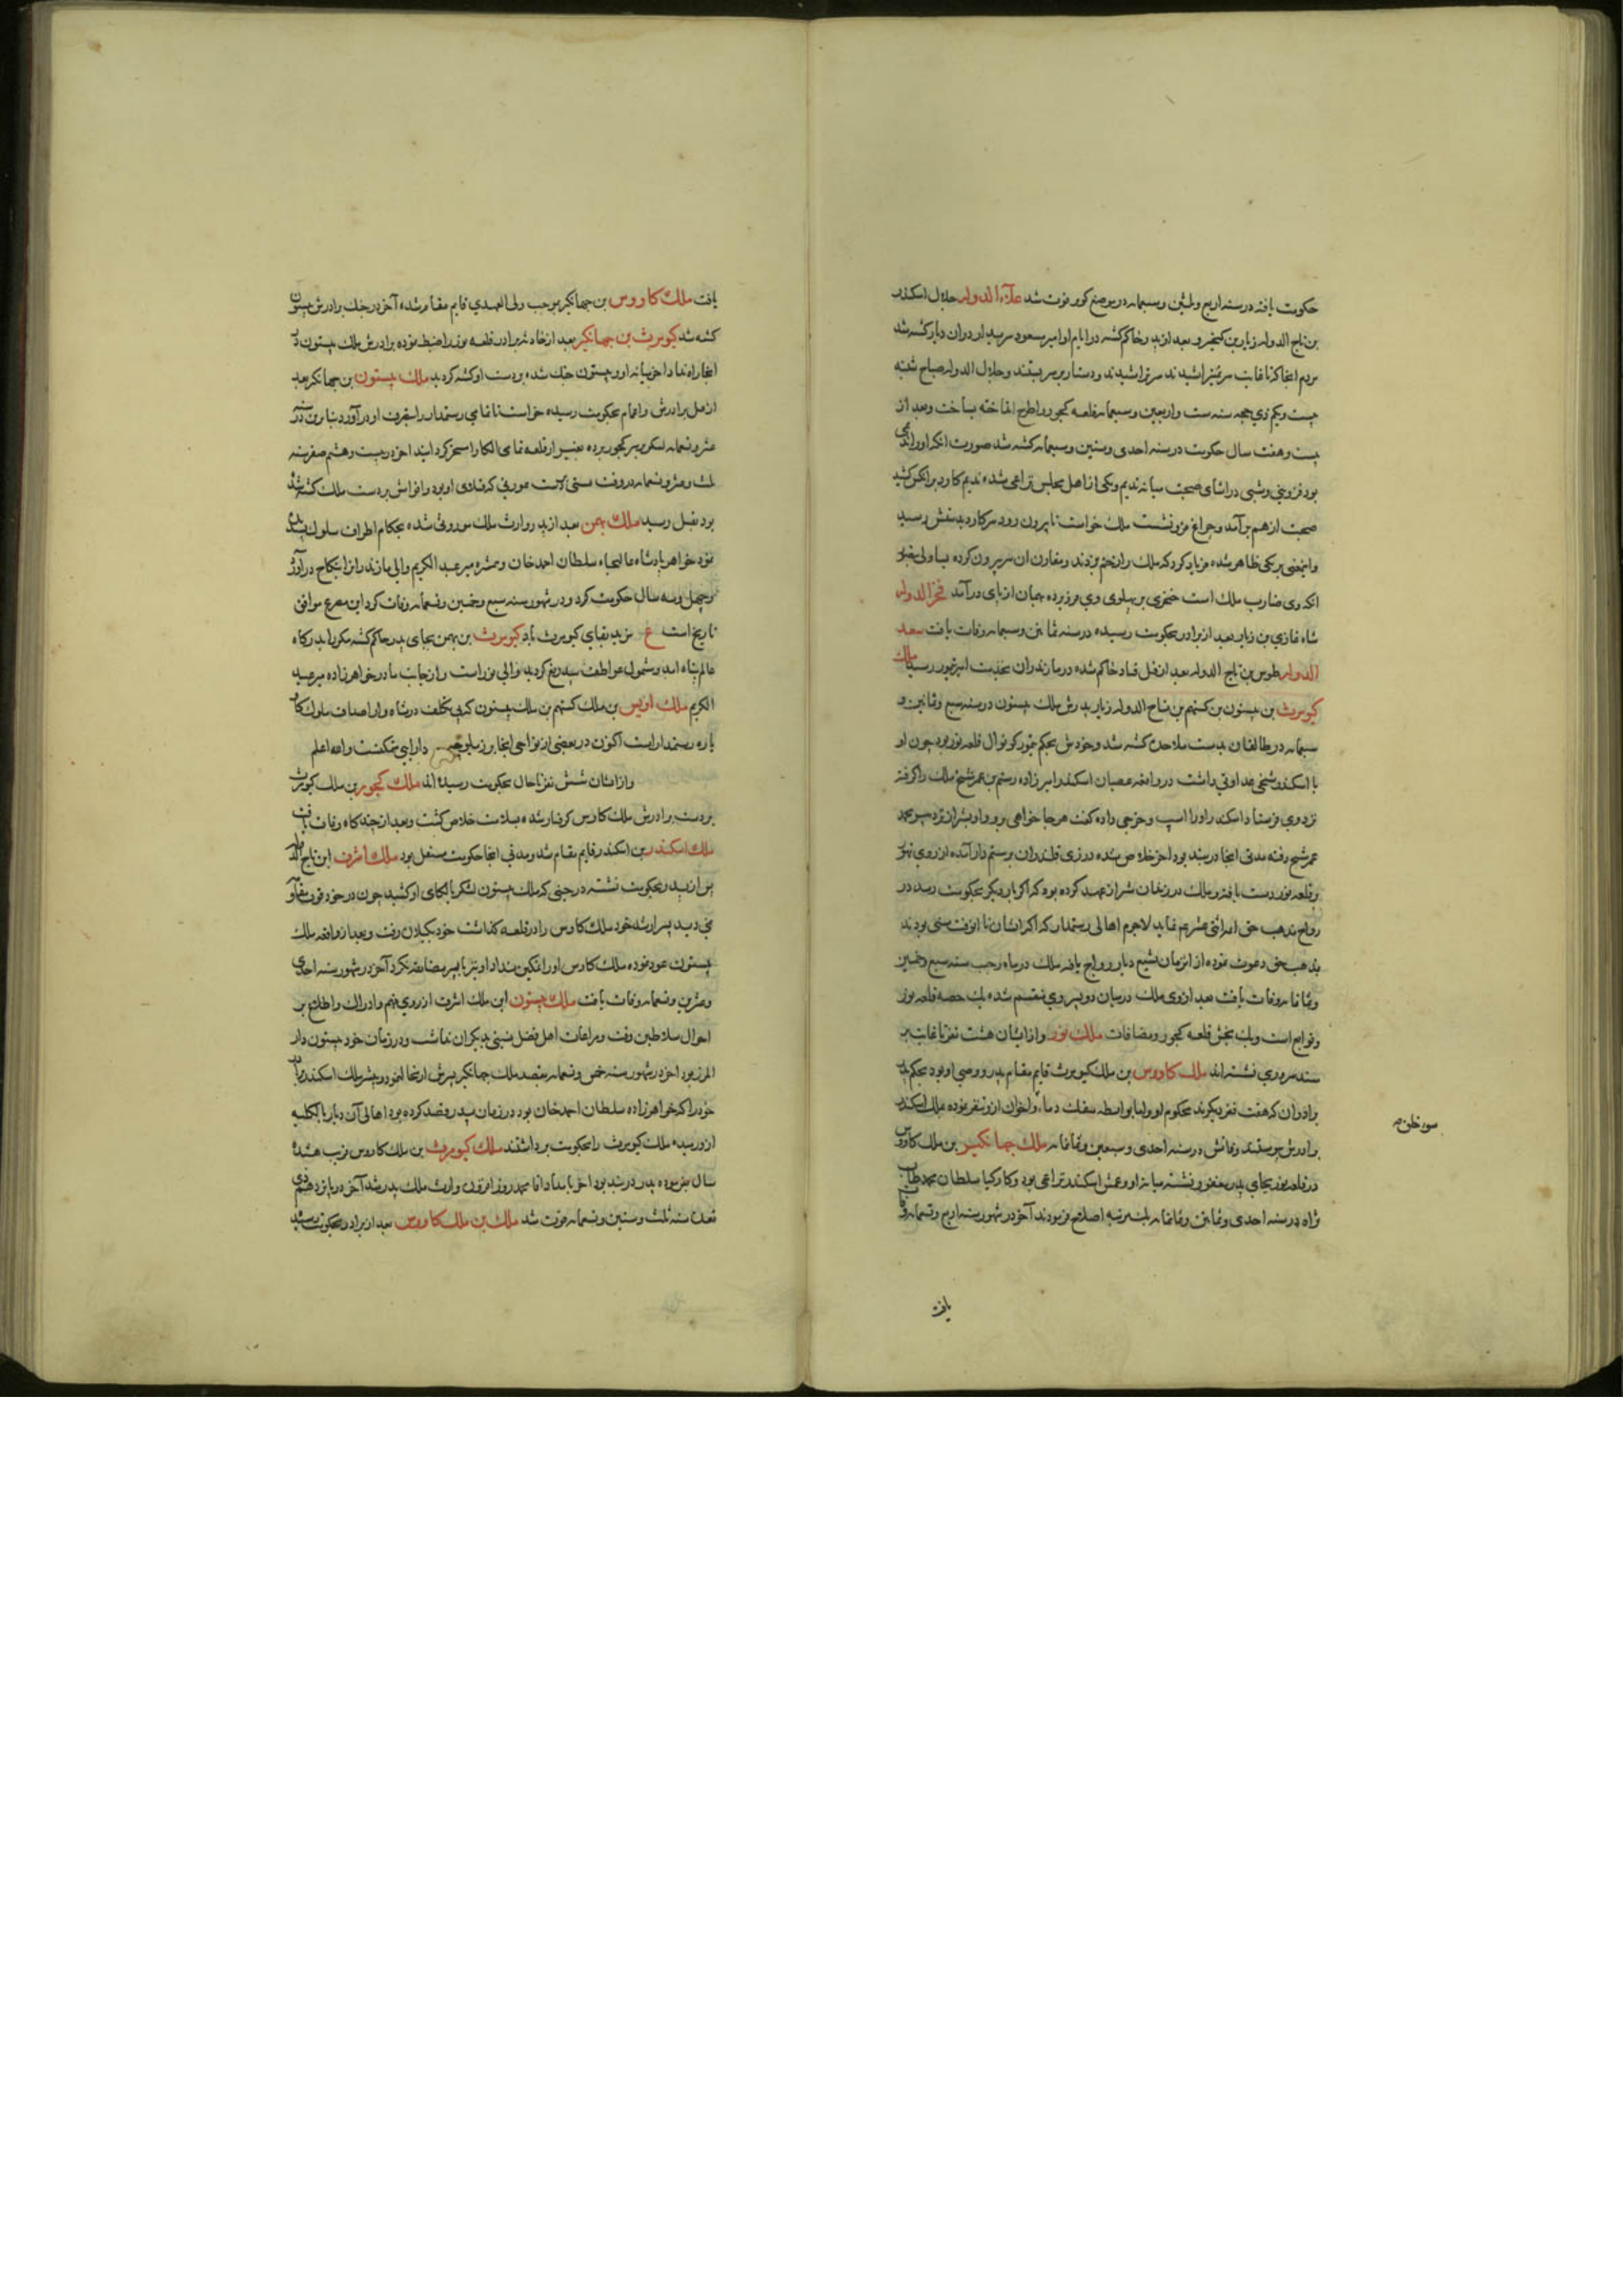 حکومت یافته در سنه اربع و ثلثین و سبعمایه در موضع کور فوت شد علاء الدوله جلال اسکندر
بن تاج الدوله زیار بن کیخسرو بعد از پدر حاکم گشته در ایام او امیر مسعود سربدار در آن دیار کشته شد
مردم انجا که تا غایت سر نمیتراشیدند سر تراشیدند و دستار بر سر بستند و جلال الدوله صباح شنبه
بیست و یکم ذی حجه سنه ست و اربعین و سبعمایه قلعه کجور را طرح انداخته بساخت و بعد از
بیست و هفت سال حکومت در سنه احدی و ستین و سبعمایه کشته شد صورت انکه او را ندیمی
بود قزوینی و شبی در اثنای صحبت میانه ندیم و یکی از اهل مجلس نزاعی شده ندیم کارد بر انکس کشید
صحبت از هم برآمد و چراغ فرو نشست ملک خواست تا بیرون رود سر کارد بدستش رسید
و اینمعنی بر یکی ظاهر شده فریاد کرد که ملک را زخم زدند و مقارن ان سر بیرون کرده یساولی بتصور
انکه وی ضارب ملک است خنجری بر پهلوی وی فرو برده بهمان از پای درآمد فخر الدوله
شاه غازی بن زیار بعد از برادر بحکومت رسیده در سنه ثمانین و سبعمایه وفات یافت سعد
الدوله طوس بن تاج الدوله بعد از قتل قباد حاکم شده در مازندران بخدمت امیر تیمور رسید ملک
کیومرث بن بیستون بن کستهم بن تاج الدوله زیار پدرش ملک بیستون در سنه سبع و ثمانین و
سبعمایه در طالقان بدست ملاحده کشته شد و خودش بحکم تیمور کوتوال قلعه نور بود چون او
با اسکندر شیخی عداوتی داشت در واقعه عصیان اسکندر امیرزاده رستم بن عمر شیخ ملک را گرفته
نزد وی فرستاد اسکندر او را اسپ و خرجی داده گفت هر جا خواهی برو و او بشیراز نزد میر محمد
عمر شیخ رفته مدتی انجا در بند بود اخر خلاص شده در زی قلندران برستمدار آمده از روی تهور
بر قلعه نور دست یافته و ملک در زندان شیراز عهد کرده بود که اگر بار دیگر بحکومت رسد در
رواج مذهب حق امامیه اثنی عشریه نماید لاجرم اهالی رستمدار که اکثر ایشان تا انوقت سنی بودند
بمذهب حق دعوت نموده از انزمان تشیع در انجا رواج یافته ملک در ماه رجب سنه سبع و خمسین
و ثمانمایه وفات یافت بعد از وی ملک در میان دو پسر وی منقسم شده یک حصه قلعه نور
و توابع است و یک بخش قلعه کجور و مضافات ملک نور و از ایشان هشت نفر تا غایت بر
مسند سروری نشسته اند ملک کاوس بن ملک کیومرث قایم مقام پدر و وصی او بود بحکم پدر
برادران که هفت نفر بودند محکوم او و اما بواسطه سفک دماء اخوان ازو متنفر بوده ملک اسکندر
برادرش پیوستند وفاتش در سنه احدی و سبعین و ثمانمایه ملک جهانگیر بن ملک کاوس
در قلعه نور بجای پدر مغفور نشسته میانه او و عمش اسکندر نزاعی بود و کارکیا سلطان محمد طاب
ثراه در سنه احدی و ثمانین و ثمانمایه اصلاح فرمودند آخر در شهور سنه اربع و تسعمایه وفات
یافت
یافت ملک کاووس بن جهانگیر بموجب ولی العهدی قایم مقام شده آخر در جنک برادرش بیستون
کشته شد کیومرث بن جهانگیر بعد از حادثه برادر قلعه نور را ضبط نموده برادرش ملک بیستون در
انجا راه نداد اخر میانه او و بیستون جنک شده بردست او کشته گردید ملک بیستون بن جهانگیر بعد
از قتل برادرش و اعمام بحکومت رسیده خواست تا تمامی رستمدار را بتصرف او درآورد بنابرین در سنه
عشر و تسعمایه لشکر بر سر کجور برده بغیر از قلعه تمامی الکا را مسخر گردانید اخر در بیست و هشتم صفر سنه
ثلث و عشر و تسعمایه در وقت مستی بدست عورتی که
بود بقتل رسید ملک بهمن بعد از پدر وارث ملک موروثی شده بحکام اطراف سلوک پسندیده
نمود خواهر پادشاه عالیجاه سلطان احمد خان و همشیره میر عبد الکریم والی مازندرانرا بنکاح درآورد
و چهل و سه سال حکومت کرد و در شهور سنه سبع و خمسین و تسعمایه وفات کرد این مصرع موافق
تاریخ است ع مزید بقای کیومرث باد کیومرث بن بهمن بجای پدر حاکم گشته مکررا بدرگاه
عالم پناه آمد و مشمول عواطف بیدریغ گردید والی نور است و از جانب مادر خواهرزاده میر عبد
الکریم ملک اویس بن ملک کستهم بن ملک بیستون
پاره رستمدار است اکنون در بعضی از نواحی انجا دارایی متمکنست و الله اعلم
و از ایشان شش نفر تا حال بحکومت رسیده اند ملک کجور بن ملک کیومرث
بردست برادرش ملک کاوس گرفتار شده بسلامت خلاص گشت و بعد از چندگاه وفات یافت
ملک اسکندر بن اسکندر قایم مقام شد و مدتی انجا حکومت مستقل بود ملک اشرف ابن تاج الدوله
پس از پدر بحکومت نشسته در حینی که ملک بیستون لشکر بالکای او کشید چون در خود قوت مقاومت
نمی دید پسر ارشد خود ملک کاوس را در قلعه گذاشت خود بگیلان رفت و بعد از واقعه ملک
بیستون عود نموده ملک کاوس او را تمکین نداد او نیز با پسر مضایقه نکرد آخر در شهور سنه احدی
و عشرین و تسعمایه وفات یافت ملک بیستون ابن ملک اشرف از روی فهم و ادراک و اطلاع بر
احوال سلاطین وقت و مراعات اهل فضل نسبتی بدیگران نداشت و در زمان خود بیستون دار
المرز بود اخر در شهور سنه خمس و تسعمایه بقصد ملک جهانگیر پسرش
خود را که خواهرزاده سلطان احمدخان بود در زمان پدر قصد کرده بود اهالی آن دیار بالکلیه
ازو رمیده ملک کیومرث را بحکومت برداشتند ملک کیومرث بن ملک کاوس قریب هشده
سال
قعده سنه ثلث و ستین و تسعمایه فوت شد ملک بن ملک کاووس بعد از برادر بحکومت رسید